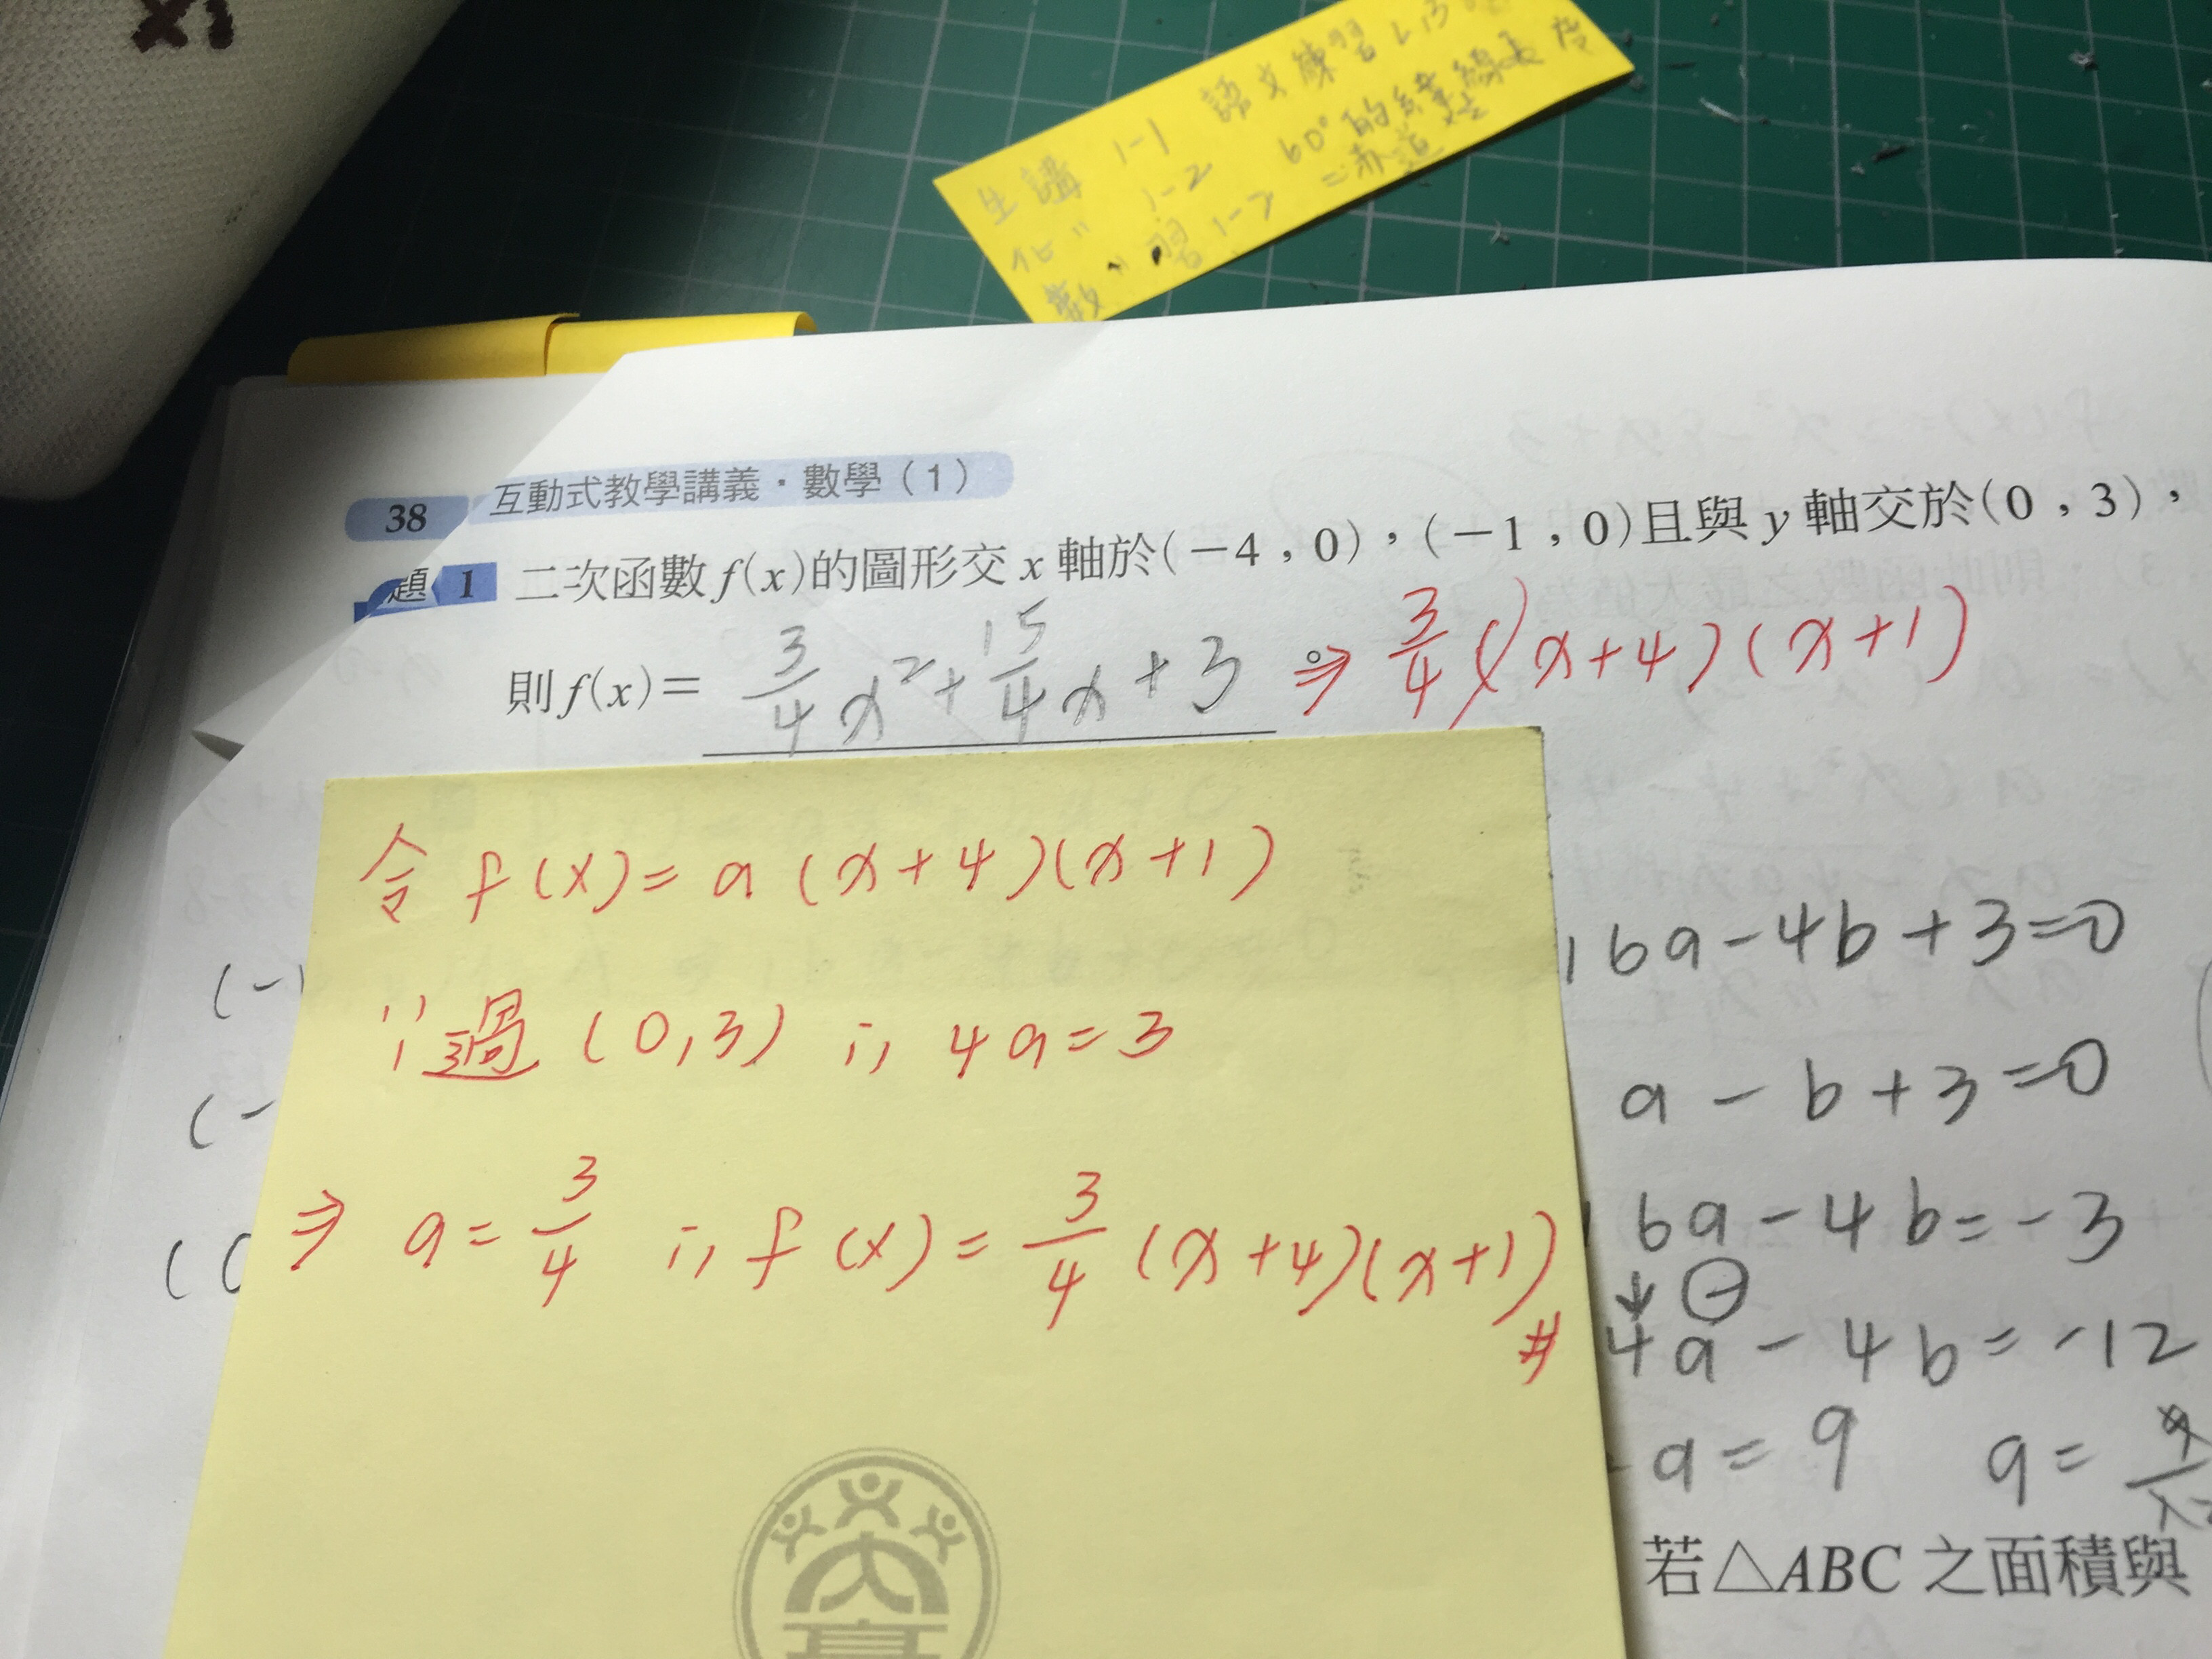 生講 1-1 語文練習 L13
化 " 1-2 60°的緯線長度
數 " 習1-2 =赤道
38 互動式教學講義·數學(1)
題 1 二次函數 f(x)的圖形交 x 軸於(-4,0),(-1,0)且與 y 軸交於(0,3),
則 f(x)= 3/4 x²+15/4 x+3 。⇒ 3/4 (x+4)(x+1)
令 f(x)= a (x+4)(x+1)
∵過 (0,3) ∴ 4a=3
⇒ a=3/4 ∴ f(x)=3/4 (x+4)(x+1) #
(-1
(-
(0
16a-4b+3=0
a-b+3=0
16a-4b=-3
↓⊖
4a-4b=-12
a=9 a=
若△ABC 之面積與
大